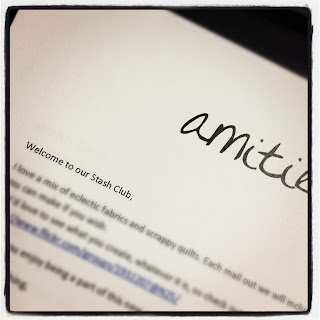 amitie
Welcome to our Stash Club,
I love a mix of eclectic fabrics and scrappy quilts. Each mail out we will inclu
you can make if you wish.
'd love to see what you create, whatever it is, so check ou
www.flickr.com/groups/
you enjoy being a part of this new